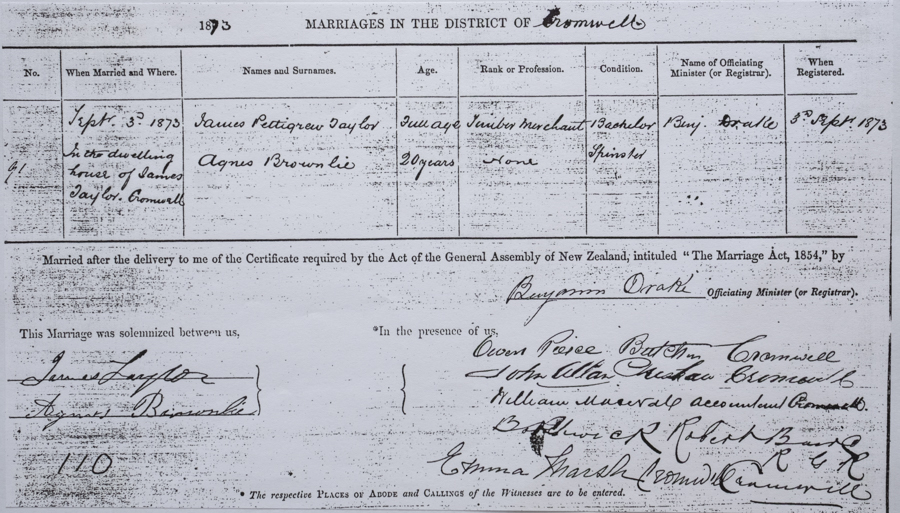 1873 MARRIAGES IN THE DISTRICT OF Cromwell
No. When Married and Where. Names and Surnames. Age. Rank or Profession. Condition. Name of Officiating Minister (or Registrar). When Registered.
Sept. 3d 1873 James Pettigrew Taylor Full age Timber Merchant Bachelor Benj. Drake 3d Sept. 1873
91 In the dwelling Agnes Brownlie 20 years None Spinster
house of James
Taylor. Cromwell
Married after the delivery to me of the Certificate required by the Act of the General Assembly of New Zealand, intituled "The Marriage Act, 1854," by
Benjamin Drake Officiating Minister (or Registrar).
This Marriage was solemnized between us, *In the presence of us,
Owen Pierce Butcher Cromwell
James Taylor John Allan Cromwell
Agnes Brownlie William accountant Cromwell.
Robert
110 Emma Marsh Cromwell
* The respective PLACES OF ABODE and CALLINGS of the Witnesses are to be entered.